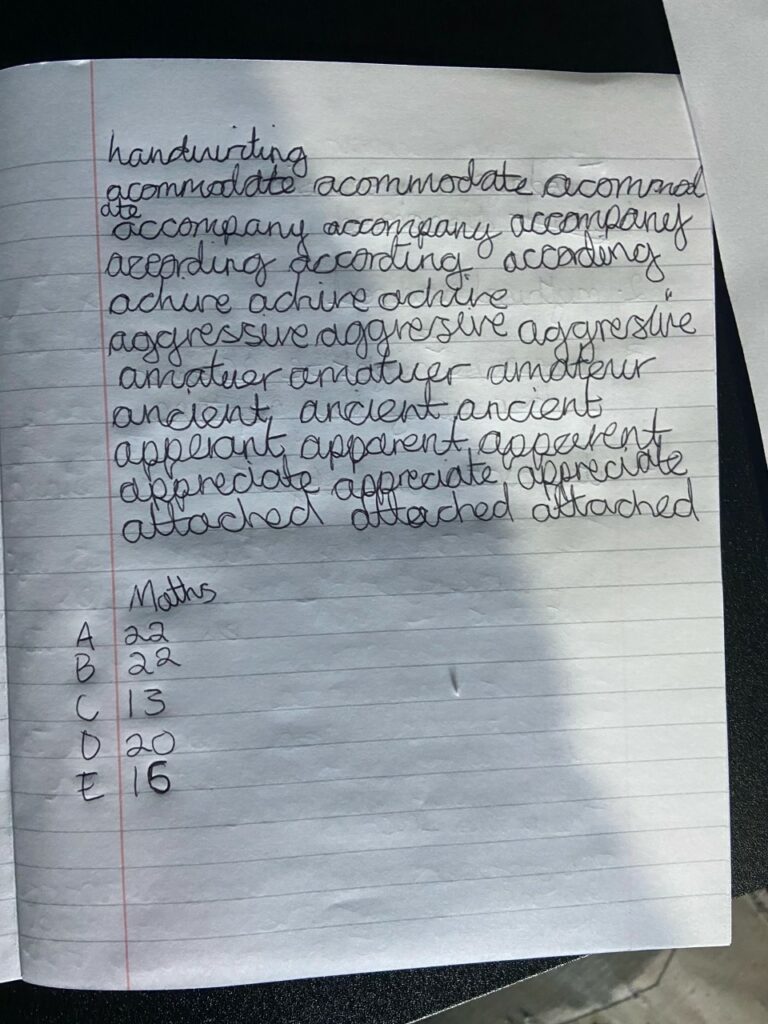 handwriting
acommodate acommodate acommod
ate
accompany accompany accompany
according according accoding
achure achire achire
aggressive aggresive aggresive
amatuer amatuer amateur
ancient ancient ancient
apperant apparent apparent
appreciate appreciate appreciate
attached attached attached
Maths
A 22
B 22
C 13
D 20
E 16